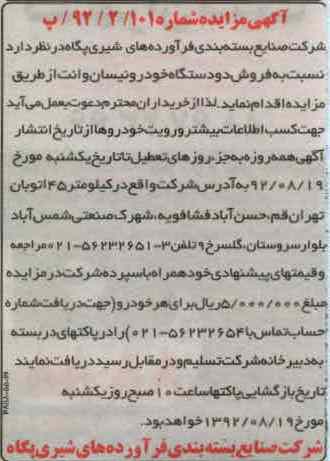 آگهی مزایده شماره ۱۰۱ / ۲ / ۹۲ / پ
شرکت صنایع بسته بندی فرآورده های شیری پگاه در نظر دارد
نسبت به فروش دو دستگاه خودرو نیسان وانت از طریق
مزایده اقدام نماید. لذا از خریداران محترم دعوت بعمل می آید
جهت کسب اطلاعات بیشتر و رویت خودروها از تاریخ انتشار
آگهی همه روزه به جز، روزهای تعطیل تا تاریخ یکشنبه مورخ
۹۲/۰۸/۱۹ به آدرس شرکت واقع در کیلومتر ۴۵ اتوبان
تهران قم، حسن آباد فشافویه، شهرک صنعتی شمس آباد
بلوار سروستان، گلسرخ ۹ تلفن ۳-۵۶۲۳۲۶۵۱-۰۲۱ مراجعه
و قیمتهای پیشنهادی خود همراه با سپرده شرکت در مزایده
مبلغ ۵/۰۰۰/۰۰۰ ریال برای هر خودرو (جهت دریافت شماره
حساب تماس با ۵۶۲۳۲۶۵۴-۰۲۱) را در پاکتهای در بسته
به دبیرخانه شرکت تسلیم و در مقابل رسید دریافت نمایند
تاریخ بازگشایی پاکتها ساعت ۱۰ صبح روز یکشنبه
مورخ ۱۳۹۲/۰۸/۱۹ خواهد بود.
شرکت صنایع بسته بندی فرآورده های شیری پگاه